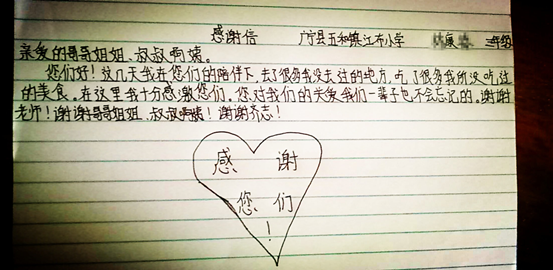 感谢信 广宁县五和镇江布小学 康 三年级
亲爱的哥哥姐姐、叔叔啊姨。
您们好！这几天我在您们的陪伴下，去了很多我没去过的地方，吃了很多我所没吃过
的美食。在这里我十分感激您们，您对我们的关爱我们一辈子也不会忘记的。谢谢
老师！谢谢哥哥姐姐、叔叔啊姨！谢谢齐志！
感 谢
您 们
！